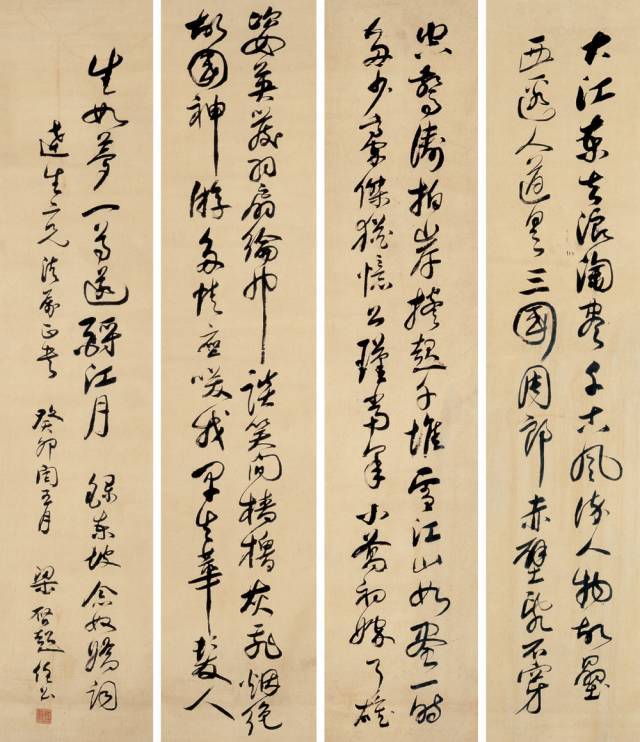 大江東去浪淘盡千古風流人物故壘
西邊人道是三國周郎赤壁亂石穿
空驚濤拍岸捲起千堆雪江山如畫一時
多少豪傑猶憶公瑾當年小喬初嫁了雄
姿英發羽扇綸巾談笑間檣櫓灰飛烟絕
故國神游多情應笑我早生華髮人
生如夢一尊還酹江月 錄東坡念奴嬌詞
達生二兄法家正書 癸卯閏五月 梁啟超任公